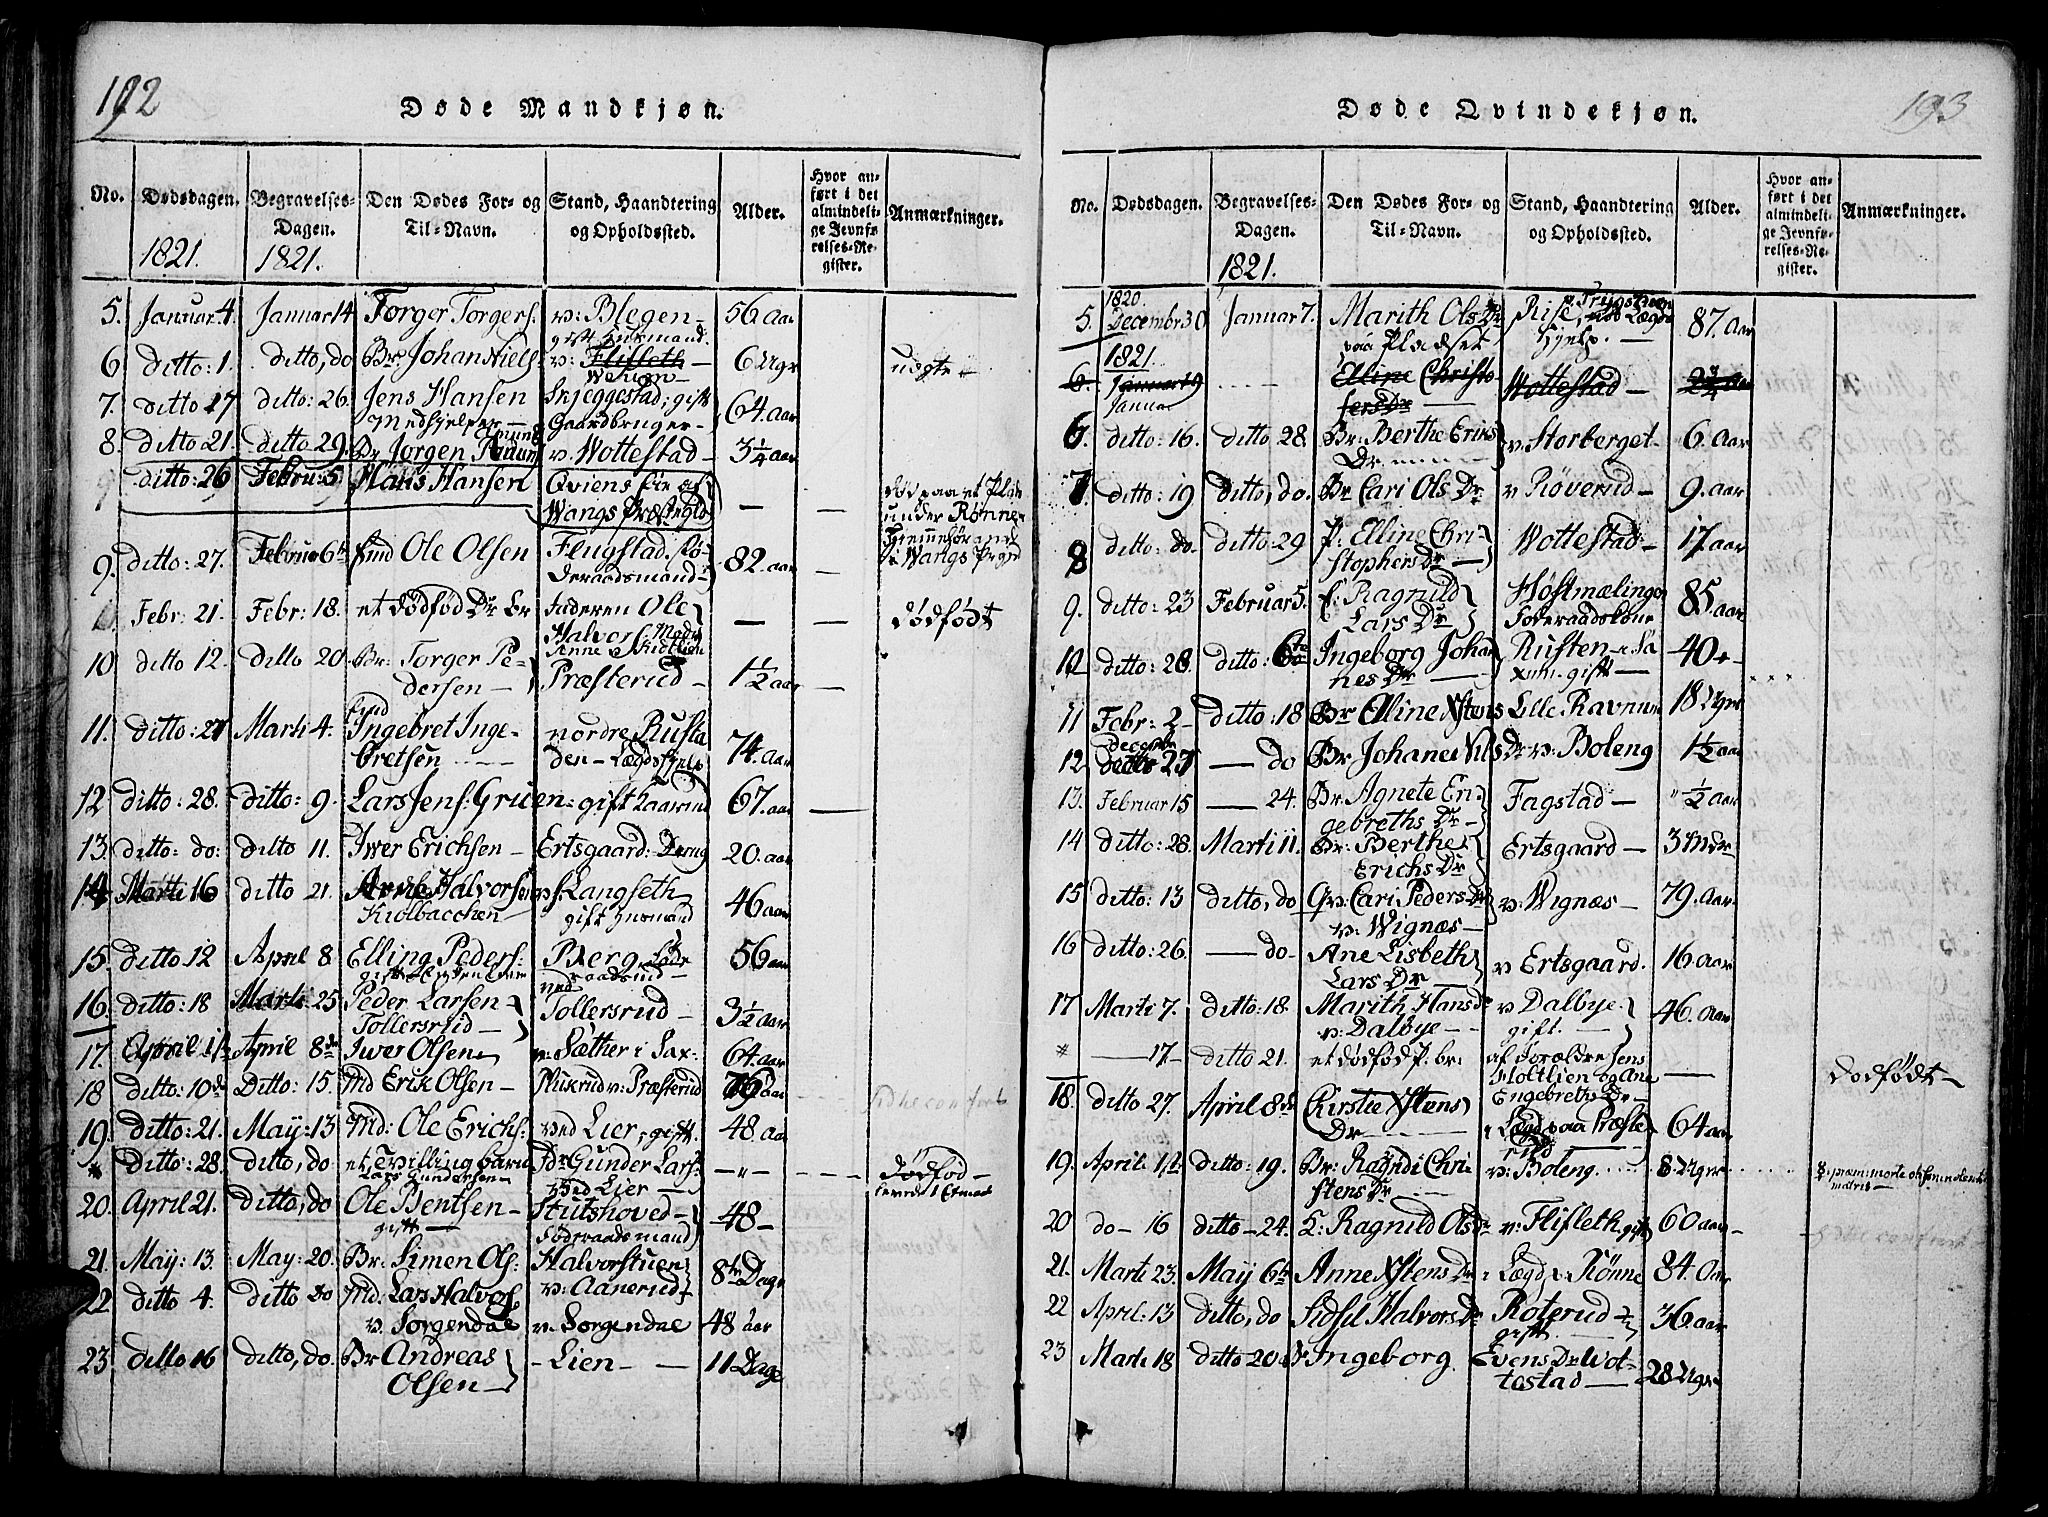 192
Døde Mandkjøn.
No. Dødsdagen. Begravelses-Dagen. Den Dødes For- og Til-Navn. Stand, Haandtering og Opholdssted. Alder. Hvor anført i det almindelige Jevnførelses-Register. Anmærkninger.
1821. 1821.
5. Januar 4. Januar 14 Torger Torgers: v: Blegen- 56 aar
gift Huusmand.
6 ditto: 1. ditto, do Br: Johan Niels: v: Flisseth 6 Uger
7. ditto 17 ditto: 26. Jens Hansen Skjeggestad; gift 64 aar
Medhjelper Gaardbruger
8. ditto 21. ditto 29. Br Jørgen v. Wottestad 3¼ aar
9 ditto: 26 Februar 5 Hans Hansen Qviens Eie af — —
Wangs Præstegld
under Rønne
i Wangs Prgd
9. ditto: 27. Februar 6te Ole Olsen Flugstad. Føderaadsmand 82. aar —
Febr: 21. Febr: 18. et dødfød Dr Br faderen Ole — — dødfødt
Halvors: Moder
Anne
10 ditto 12. ditto 20 Br: Torger Pedersen Præsterud 1½ aar —
11. ditto: 27 Marti 4. Ingebret Ingebretsen nordre Rustaden - Lægdshjelp 74. aar
12 ditto: 28. ditto: 9. Lars Jens: Grüen gift Kaarud 67. aar —
13. ditto: do: ditto 11. Iwer Erichsen Ertsgaard: Dreng 20. aar
14 Marti 16 ditto 21. Arne Halvorsen v: Langseth 46 aar
Kiølbacchen gift Husmand
15. ditto 12 April 8 Elling Peders: Berg 56 aar
16. ditto: 18 Marti 25 Peder Larsen Tollersrud 3½ aar
Tollersrud
17. April 1 April 8de Iwer Olsen v: Sæther i Sax- 64. aar
18 ditto: 10de Ditto: 15. Md Erik Olsen v: Præsterud
19. ditto: 21. May: 13 Md: Ole Erichs: ved Lier, gift. 48. aar
* ditto: 28. ditto, do et Tvilling barn Gunder Lars: - - - dødfød -
Lars Gundersen Ved Lier
20. April 21. ditto, do Ole Bentsen Stutshoved 48
gift Føderaadsmand
21. May: 13. May: 20. Br: Simen Ols: Halvorstuen 8te Dage
v: Aanerud
22. ditto 4. ditto do Md: Lars Halvors: v. Sorgendal v. Sorgendal 48 aar
23. ditto 16 ditto, do. Br Andreas Olsen - Lien - 11 Dage
193
Døde Qvindekjøn.
No. Dødsdagen. Begravelses-Dagen. Den Dødes For- og Til-Navn. Stand, Haandtering og Opholdssted. Alder. Hvor anført i det almindelige Jevnførelses-Register. Anmærkninger.
1821.
1820.
5. Decembr 30 Januar 7. Marith Ols Dr Rise, 87. aar
paa Pladset Hjelp.
1821.
6. Januar 19 Elline Christofers Dr Wottestad
Januar
6. ditto: 16. ditto 28 Br: Berthe Eriks Dr v: Storberget 6. aar
7 ditto: 19 ditto, do. Br Cari Ols Dr v Røverud 9. aar
8 ditto: do ditto: 29 P: Elline Christophers Dr Wottestad 17 aar
9. ditto: 23 Februar 5. E: Ragnild Lars Dr Høstmælingen Føderaadskone 85 aar
10 ditto: 28 ditto: 6te Ingeborg Johannes Dr Rusten i Saxum. gift 40
11 Febr: 2 ditto: 18 Br Elline Xstens Lille Ravnum 18 Uger
12 27 — do Br Johane Nils Dr v: Boleng 1½ aar
13. Februar 15 — 24. Br: Agnete Engebreths Dr Fagstad ½ aar
14 ditto: 28. Marti 11. Br: Berthe Erichs Dr Ertsgaard 3 Mdr
15 ditto: 13 ditto, do Qv: Cari Peders Dr v: Wignæs 79. aar
v: Wignæs
16 ditto: 26. — do Ane Lisbeth Lars Dr v Ertsgaard. 16. aar
17 Marti 7. ditto: 18. Marith Hans Dr v Dalbye 46. aar
v: Dalbye gift.
* — 17 ditto 21. et dødfød P. br: af Forældre Jens — Dødfødt
Holtlien og Ane
Engebreths Dr
18. ditto 27. April 8de Kirstie Xstens Dr Lægd paa Præsterud 64 aar
19. April 1 ditto: 19. Br: Ragndi Christens Dr v: Boleng 8. Uger
20 do 16 ditto 24. E: Ragnild Ols Dr v: Flisseth gift 60 aar
21. Marti 23. May 6te Anne Xstens Dr i Lægd v Rønne 84. aar
22 April: 13 ditto, do Sidsel Halvors Dr Roterud gift 36 aar
23 Marti 18 ditto 20 Ingeborg Evens Dr Wottestad 28 Uger